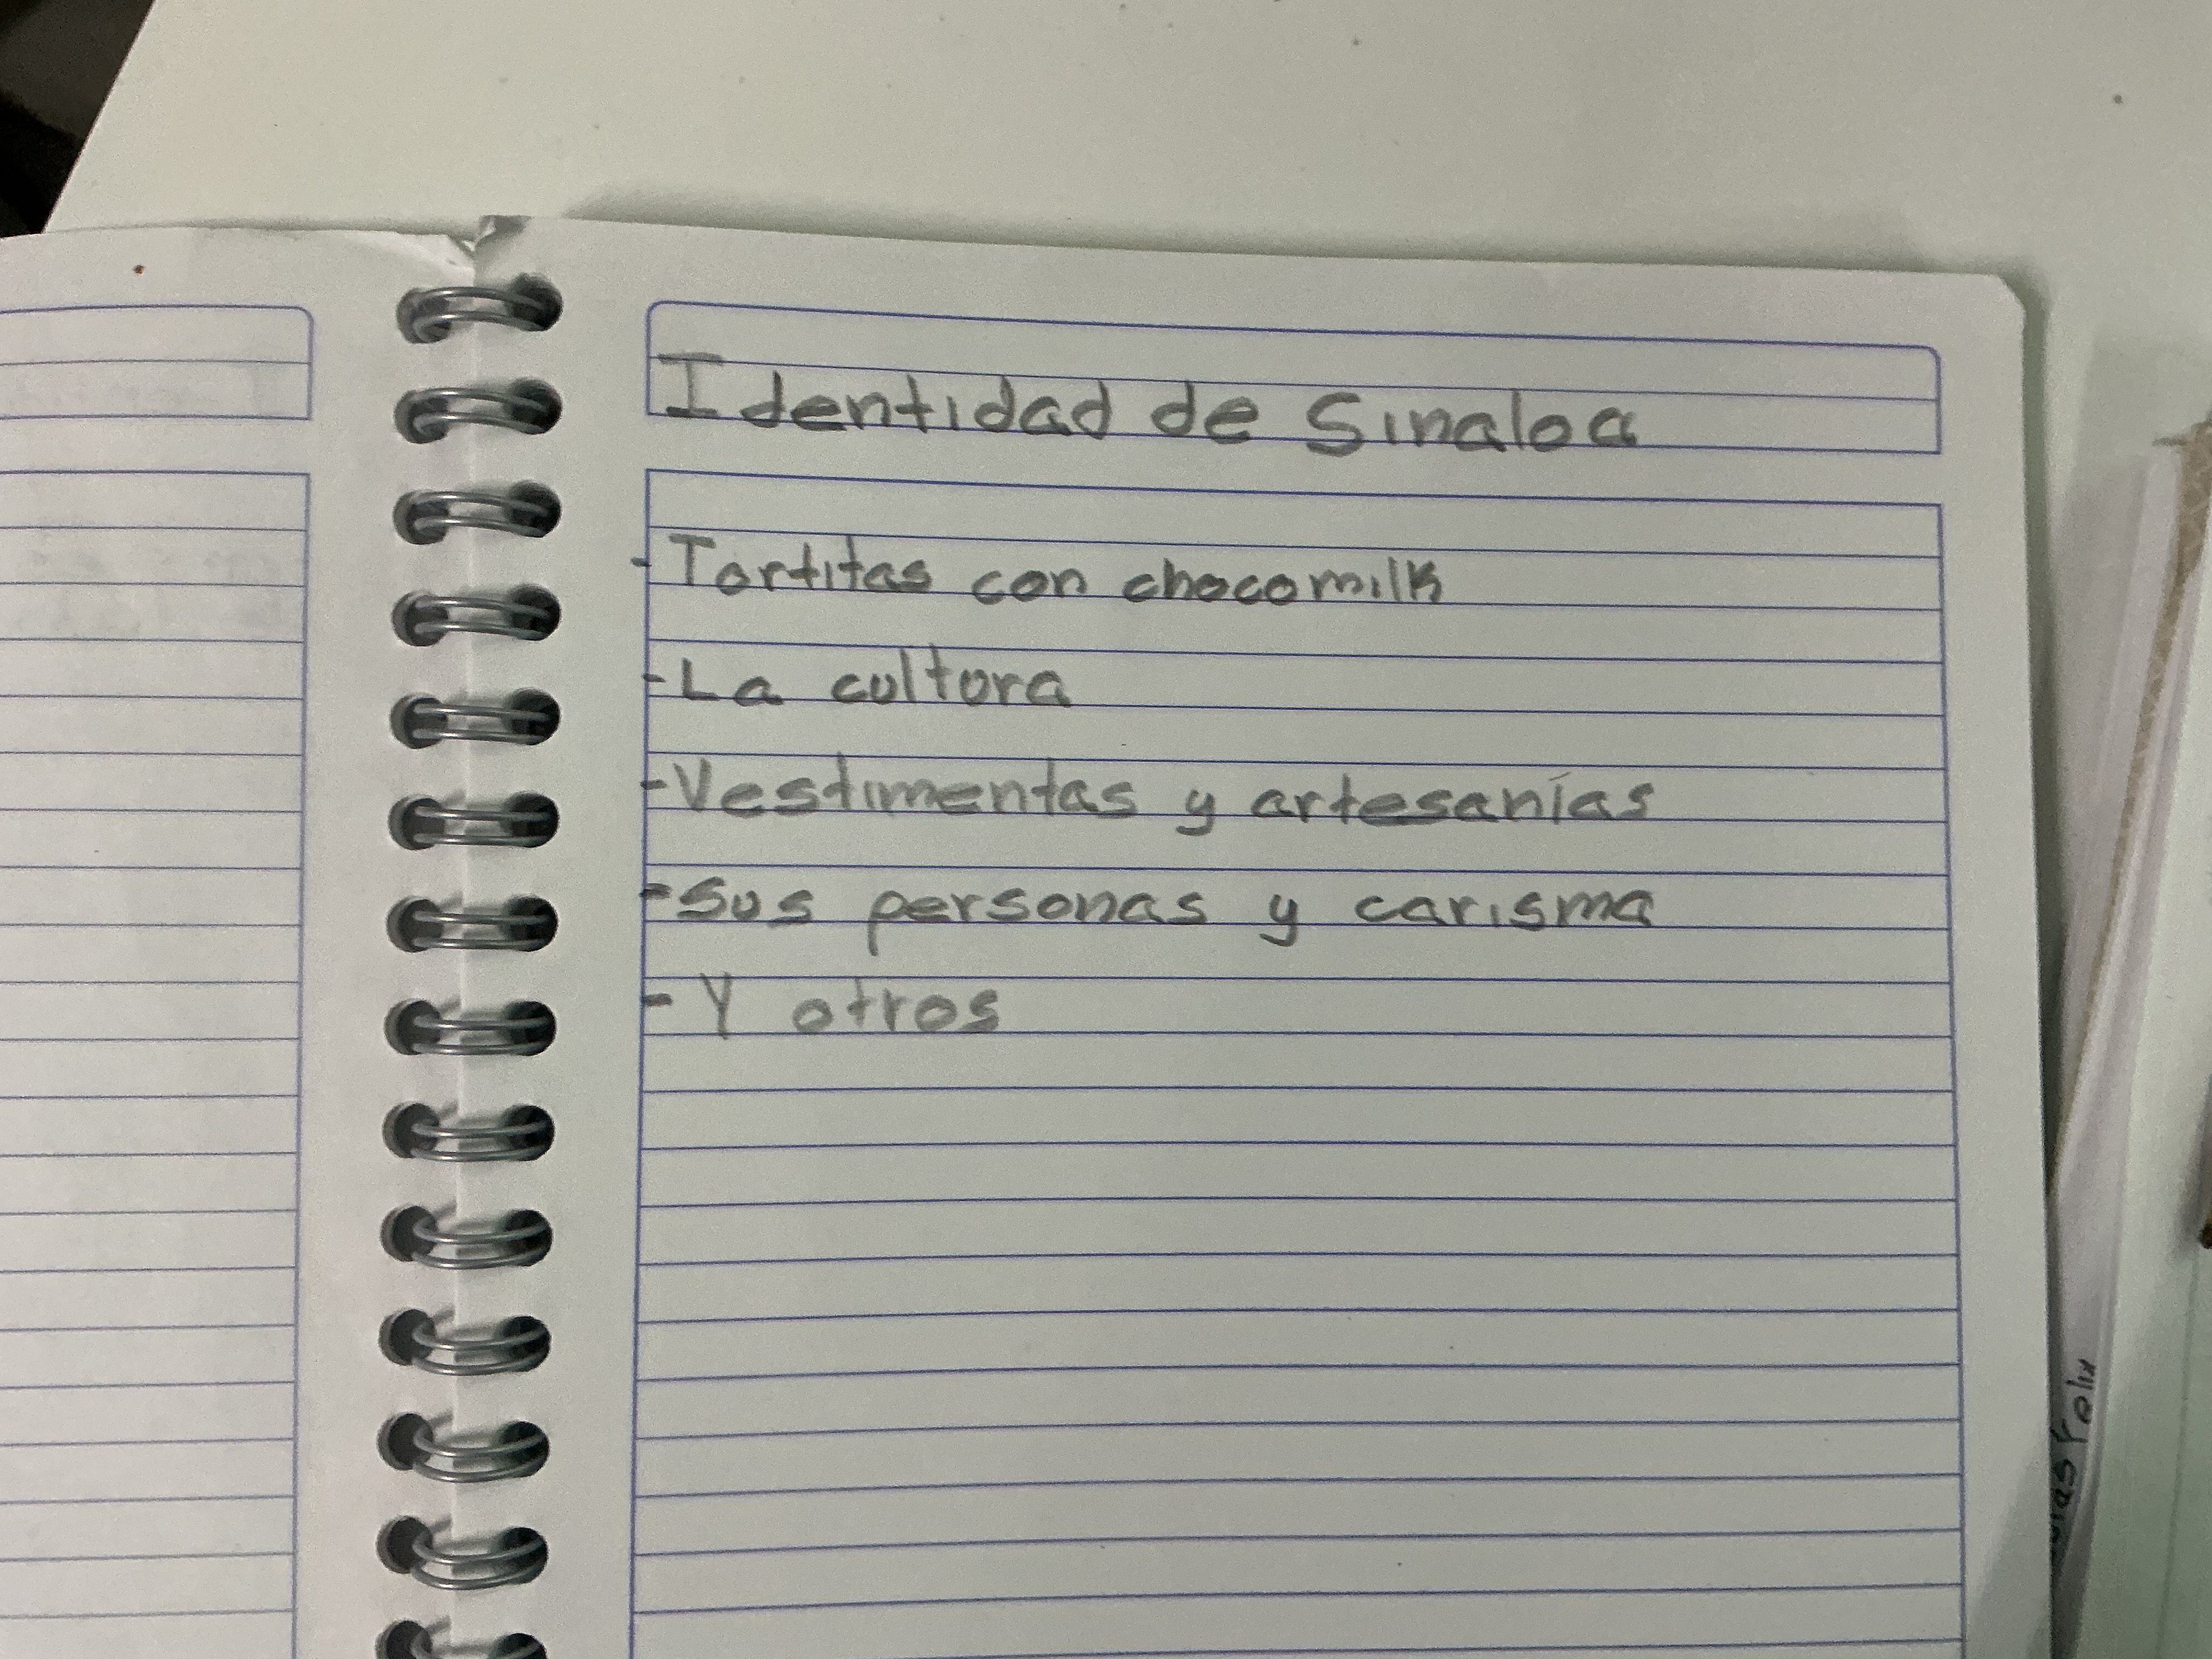 Identidad de Sinaloa
-Tortitas con chocomilk
-La cultura
-Vestimentas y artesanías
-Sus personas y carisma
-Y otros
Felix